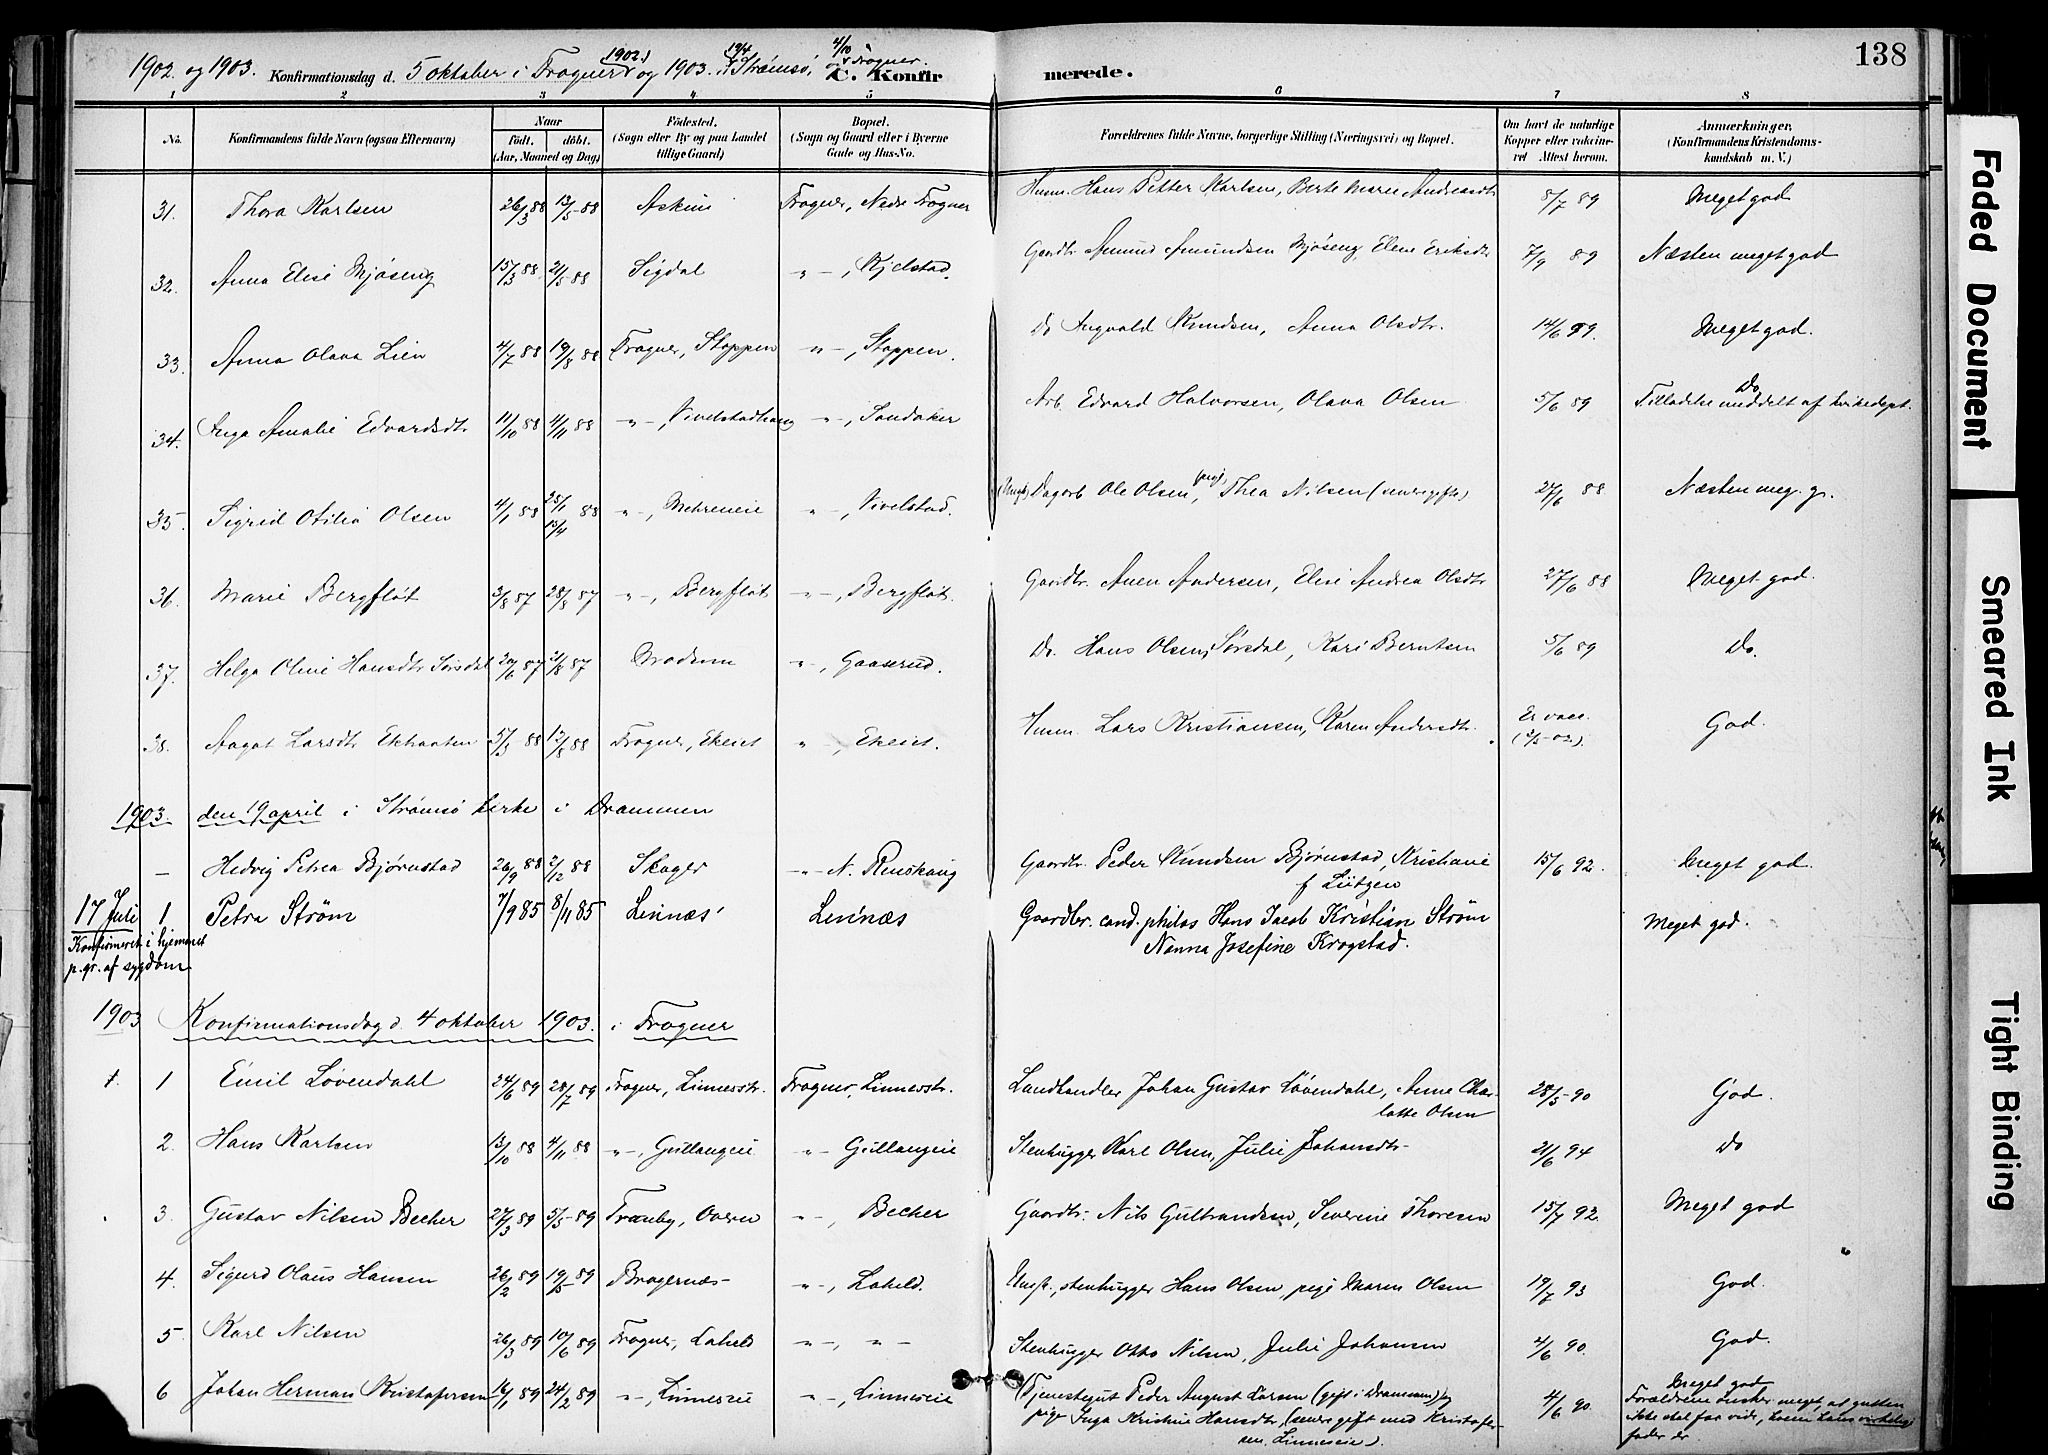 138
1902 og 1903. Konfirmationsdag d. 5 oktober i Frogner 1902 og 1903 19/4 i Strømsø, 4/10 i Frogner. C. Konfir merede.
1 2 3 4 5 6 7 8
No. Konfirmandens fulde Navn (ogsaa Efternavn) Naar Födt. döbt. (Aar, Maaned og Dag) Födested. (Sogn eller By og paa Landet tillige Gaard) Bopæl. (Sogn og Gaard eller i Byerne Gade og Hus-No. Forældrenes fulde Navne, borgerlige Stilling (Næringsvei) og Bopæl. Om havt de naturlige Kopper eller vaccineret Attest herom. Anmærkninger. (Konfirmandens Kristendomskundskab m. V.)
31. Thora Karlsen 26/3 88 13/5-88 Askim Frogner, Nedre Frogner Husm. Hans Petter Karlsen, Berte Marie Andreasdtr 8/7 89 Meget god
32. Anna Elise Mjøseng 15/3 88. 21/5 88 Sigdal " -, Kjelstad. Gaardbr. Amund Amundsen Mjøseng, Elene Eriksdtr 7/9 89 Næsten meget god
33. Anna Olava Lien 4/7 88 19/8 88 Frogner, Stoppen " -, Stoppen. Do Ingvald Knudsen, Anna Olsdtr. 14/6 89. Meget god.
34. Inga Amalie Edvardsdtr 11/10 88 4/11 88 " -, Vivelstadhaug " -, Sandaker Arb. Edvard Halvorsen, Olava Olsen 5/6 89 Do Tilladelse meddelt af kirkedept.
35. Sigrid Otilie Olsen 4/1 88 25/1 88 13/4 " -, Mehreneie " -, Vivelstad. Dagarb Ole Olsen, pige Thea Nilsen (senere gifte) 27/6 88 Næsten meg. g.
36. Marie Bergfløt 3/8 87 28/8 87 " -, Bergfløt " -, Bergfløt. Gaardbr. Anen Andersen, Elise Andrea Olsdtr 27/6 88 Meget god.
37. Helga Oline Hansdtr Sørsdal 20/6 87 21/8 87 Modum " -, Gaaserud. Do. Hans Olsen Sørsdal, Kari Berntsen 5/6 89 Do.
38. Aagot Larsdtr Ekhaaten 5/3 88 12/8 88 Frogner, Ekeiet " -, Ekeiet. Husm. Lars Kristiansen, Karen Andersdtr. Er vacc. (3/5-02). God.
1903. den 19 april i Strømsø kirke i Drammen
– Hedvig Petrea Bjørnstad 26/9 88 2/12 88 Skoger " - N. Renskaug Gaardbr. Peder Knudsen Bjørnstad, Kristiane f Lütgen 15/6 92. Meget god.
17 Juli 1 Petra Strøm 7/9 85 8/11 85 Linnæs Linnæs Gaardbr. cand. philos Hans Jacob Kristian Strøm Meget god.
Konfirmeret i hjemmet Nanna Josefine Krogstad.
p. gr. af sygdom
1903 Konfirmationsdag d. 4 oktober 1903. i Frogner
1 Emil Løvendahl 24/6 89 28/7 89 Frogner, Linnesstr. Frogner, Linnesstr. Landhandler Johan Gustav Løvendahl, Anne Charlotte Olsen 28/5-90 God.
2. Hans Karlsen 13/10 88 4/11 88 " -, Gullaugeie " - Gullaugeie Stenhugger Karl Olsen, Julie Johansdtr 21/6 94 Do
3. Gustav Nilsen Becher 27/3 89 5/5-89 Tranby, Overn " -, Becher Gaardbr. Nils Gulbrandsen, Severine Thoresen 15/7 92. Meget god
4. Sigurd Olaus Hansen 26/2 89 19/5 89 Bragernæs " -, Lahell. Ungk., stenhugger Hans Olsen, pige Maren Olsen 19/7 93 God.
5. Karl Nilsen 26/3 89 10/6 89 Frogner, Lahell " -, " - Stenhugger Otto Nilsen, Julie Johansen 4/6 90. God.
6 Johan Herman Kristofersen 16/1 89 24/2 89 " -, Linneseie " -, Linneseie (Tjenestegut Peder August Larsen (gift i Drammen) 4/6 90. Meget god
pige Inga Kristine Hansdtr, (senere gift med Kristofersen, Linneseie). Forældrene ønsker meget, at gutten ikke skal faa vide, hvem hans virkelige fader er.
Faded Document
Smeared Ink
Tight Binding